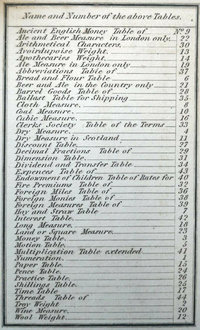 Name and Number of the above Tables.
Ancient English Money Table of Nº 9
Ale and Beer Measure in London only 22
Arithmetical Characters 30
Avoirdupoise Weight 13
Apothecaries Weight 14
Ale Measure in London only
Abbreviations Table of 37
Bread and Flour Table 6
Beer and Ale in the Country only 21
Barrel Goods Table of
Ballast Table for Shipping 35
Cloth Measure
Coal Measure
Cubic Measure 16
Clerks Society Table of the Terms
Dry Measure
Dry Measure in Scotland
Discount Table 27
Decimal Fractions Table of 29
Dimension Table 31
Dividend and Transfer Table 34
Expences Table of 43
Endowment of Children Table of Rates for 40
Fire Premiums Table of 32
Foreign Miles Table of 36
Foreign Monies Table of 38
Foreign Measures Table of 39
Hay and Straw Table 7
Interest Table 42
Long Measure
Land or Square Measure 23
Money Table
Motion Table
Multiplication Table extended 41
Numeration
Paper Table
Pence Table
Practice Table 26
Shillings Table 25
Time Table 17
Threads Table of 44
Troy Weight
Wine Measure 20
Wool Weight 12